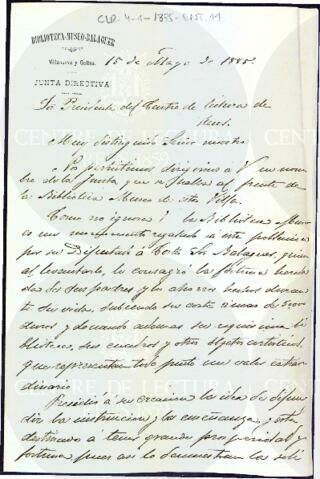 CLR-4-1-1885-E155.11
BIBLIOTECA-MUSEO-BALAGUER
Villanueva y Geltrú
JUNTA DIRECTIVA
15 de Mayo de 1885.
Sr. Presidente del Centro de Lectura de
Reus.
Muy distinguido Señor nuestro
Nos permitimos dirigirnos á V en nom
bre de la Junta que se halla al frente de
la Biblioteca Museo de esta Villa.
Como no ignora V la Biblioteca Museo
es un monumento regalado á esta poblacion
por su Diputado á Cortes Sor Balaguer, quien
al levantarlo, le consagró la fortuna hereda
da de sus padres y los ahorros hechos duran
te su vida, subiendo su coste á mas de
duros y donando además su riquísima bi
blioteca, sus cuadros y otros objetos artísticos,
que representan todo junto un valor extraor
dinario
Presidió á su creacion la idea de difun
dir la instruccion y la enseñanza, y está
destinado á tener grande prosperidad y
fortuna pues asi lo demuestran la
CENTRE DE LECTURA
1859